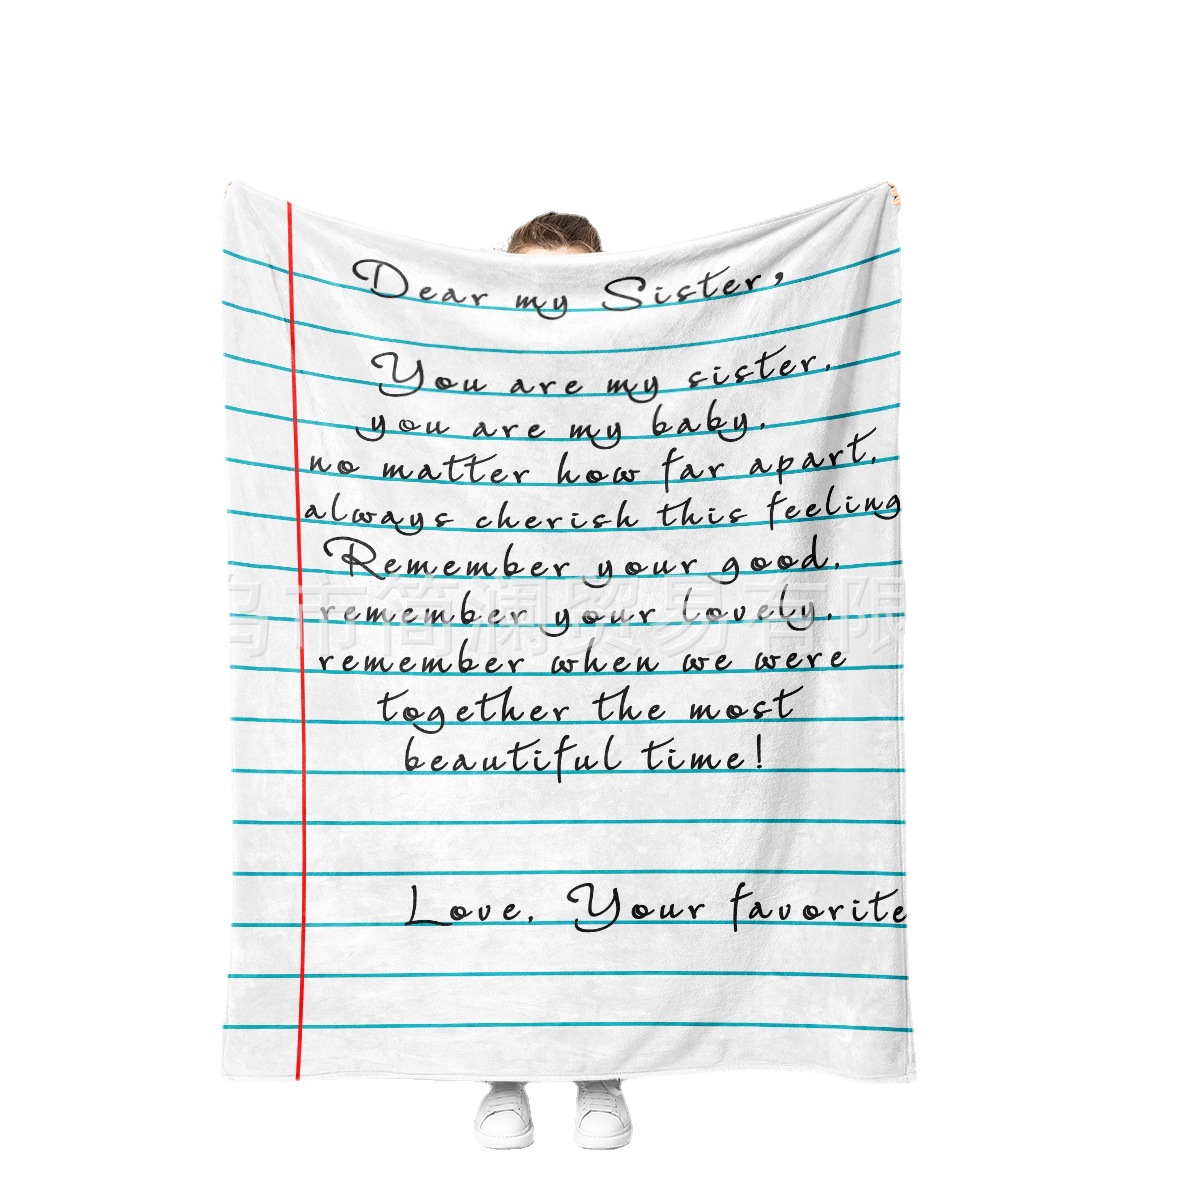 Dear my Sister,
You are my sister,
you are my baby,
no matter how far apart,
always cherish this feeling
Remember your good,
remember your lovely,
乌市简澜贸易有限
remember when we were
together the most
beautiful time!
Love, Your favorite